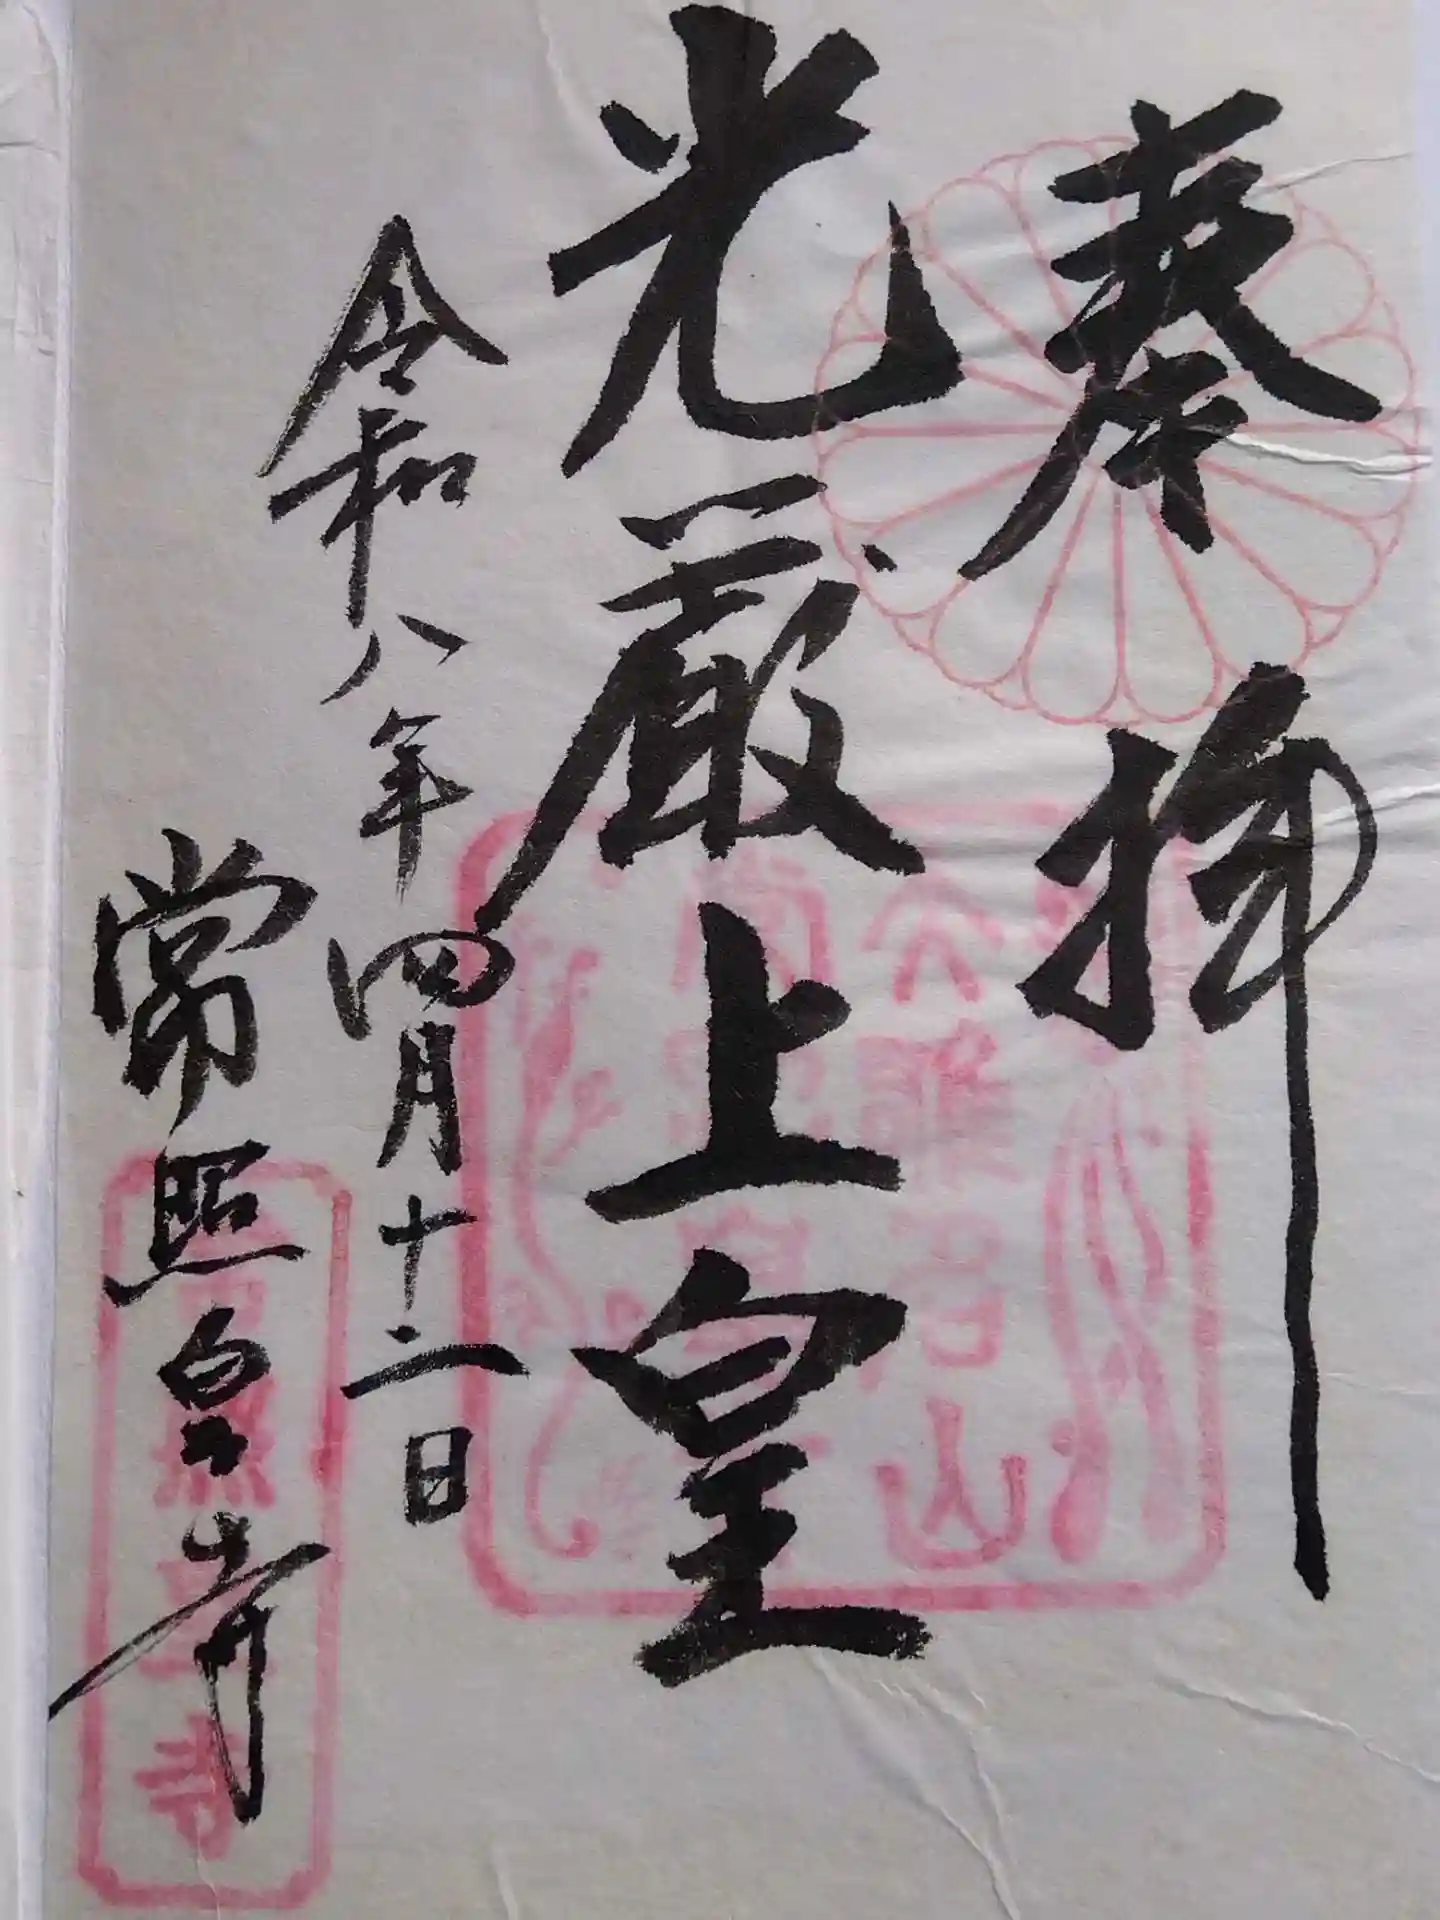 奉拝
光厳上皇
令和八年四月十二日
常照皇寺